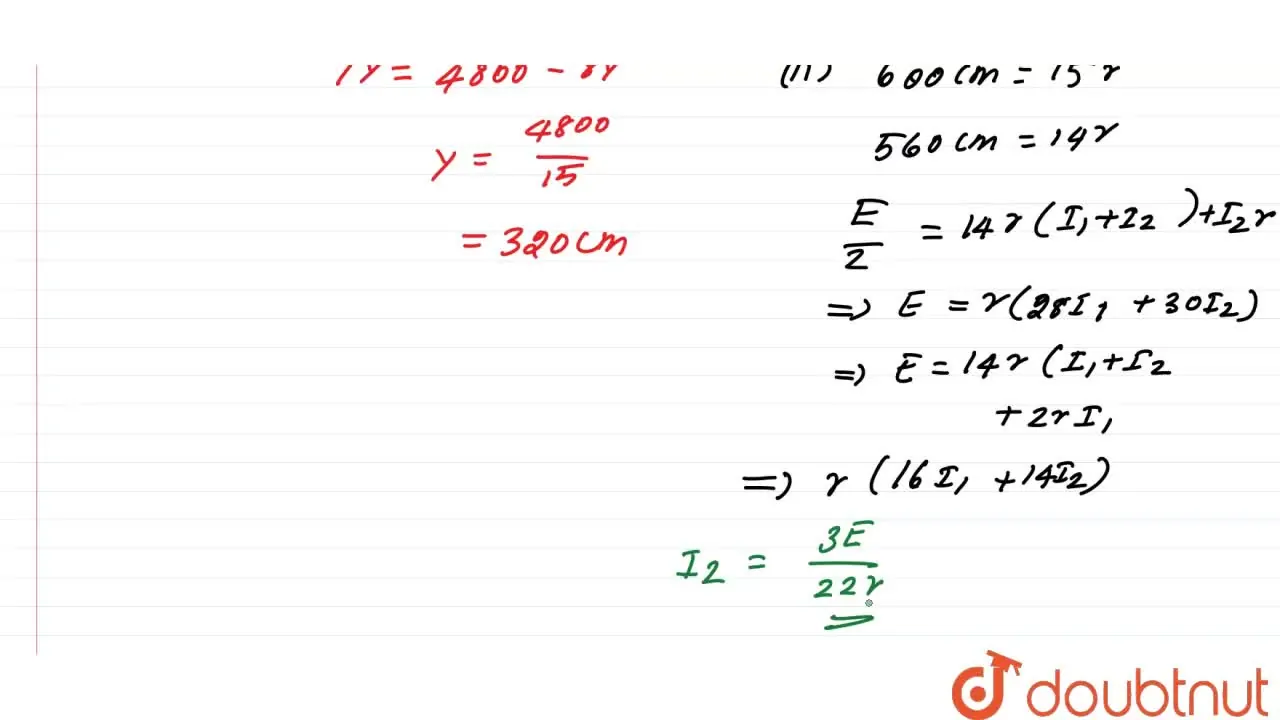 7Y = 4800 - 8Y
Y = 4800/15
= 320 cm
(ii) 600 cm = 15 r
560 cm = 14 r
E/2 = 14 r (I1 + I2) + I2 r
=> E = r (28 I1 + 30 I2)
=> E = 14 r (I1 + I2
+ 2 r I1
=> r (16 I1 + 14 I2)
I2 = 3E/22r
doubtnut